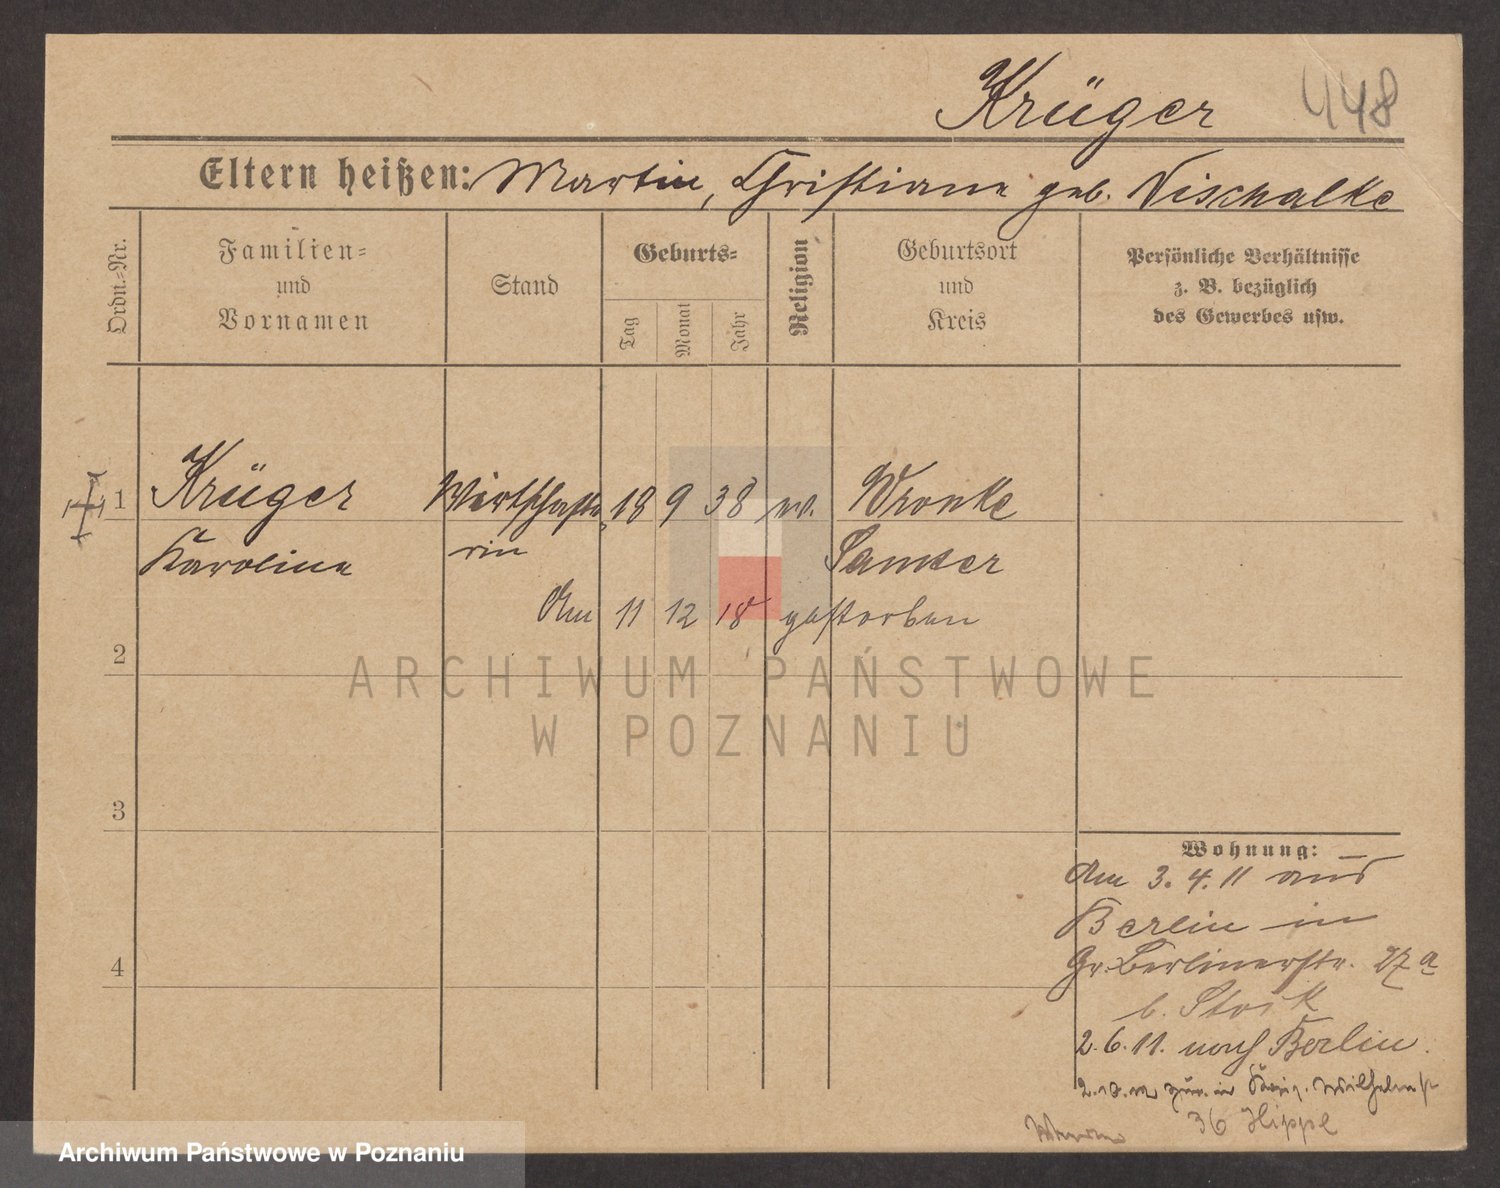 Krüger 448
Eltern heißen: Martin, Christiane geb. Nischalke
Ordn.=Nr.
Familien=
und
Vornamen
Stand
Geburts=
Tag
Monat
Jahr
Religion
Geburtsort
und
Kreis
Persönliche Verhältnisse
z. B. bezüglich
des Gewerbes usw.
1 Krüger Wirtschafte 18 9 38 ev. Wronke
Karoline rin Samter
Am 11 12 18 gestorben
2
ARCHIWUM PAŃSTWOWE
W POZNANIU
3
4
Wohnung:
Am 3. 4. 11 aus
Berlin in
Gr. Berlinerstr. 27 a
b. Stoik
2. 6. 11. nach Berlin.
in Wilhelmstr
36 Hippe
Archiwum Państwowe w Poznaniu